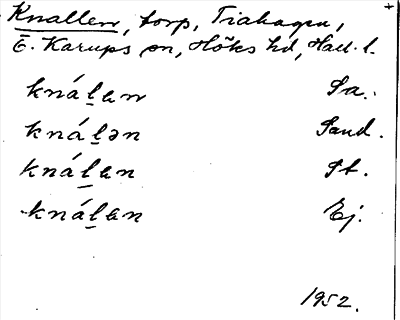 Knallen, torp, Tiahagen,
Ö. Karups sn, Höks hd, Hall. l.
knáḻan Sa.
knáḻən Sand.
knáḻan St.
knáḻan Ej.
1952.